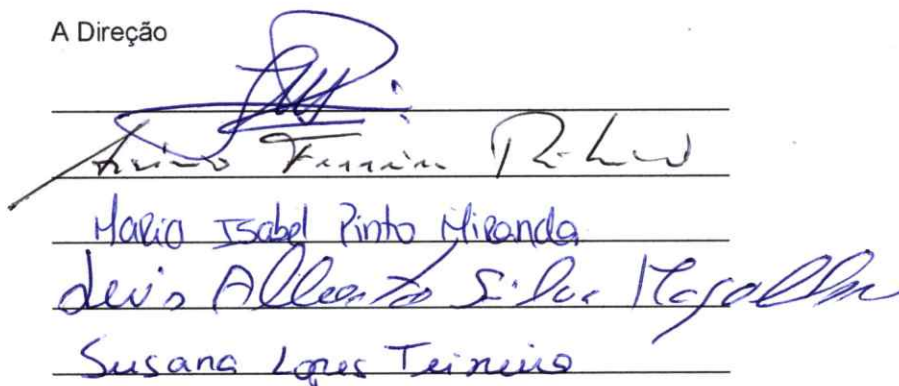 A Direção
Ferreira
Maria Isabel Pinto Miranda
Luís Alberto Silva Magalhães
Susana Lopes Teixeira